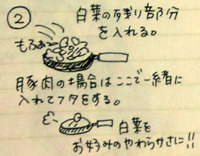 ②
白菜の残り部分
を入れる。
もふぁ〜
豚肉の場合はここで一緒に
入れてフタをする。
白菜を
お好みのやわらかさに!!